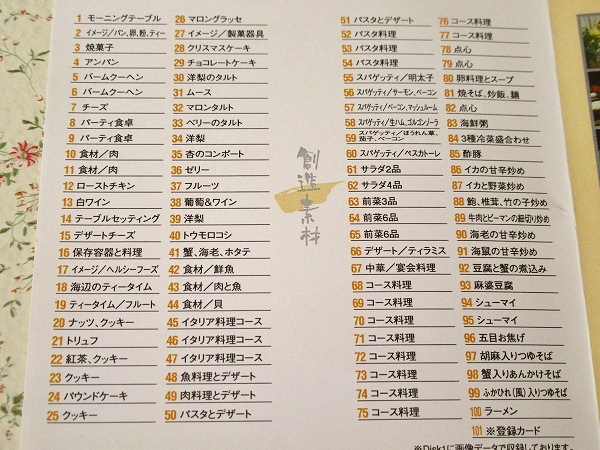 1 モーニングテーブル
2 イメージ/パン、卵、粉、ティー
3 焼菓子
4 アンパン
5 バームクーヘン
6 バームクーヘン
7 チーズ
8 パーティ食卓
9 パーティ食卓
10 食材/肉
11 食材/肉
12 ローストチキン
13 白ワイン
14 テーブルセッティング
15 デザートチーズ
16 保存容器と料理
17 イメージ/ヘルシーフーズ
18 海辺のティータイム
19 ティータイム/フルート
20 ナッツ、クッキー
21 トリュフ
22 紅茶、クッキー
23 クッキー
24 パウンドケーキ
25 クッキー
26 マロングラッセ
27 イメージ/製菓器具
28 クリスマスケーキ
29 チョコレートケーキ
30 洋梨のタルト
31 ムース
32 マロンタルト
33 ベリーのタルト
34 洋梨
35 杏のコンポート
36 ゼリー
37 フルーツ
38 葡萄&ワイン
39 洋梨
40 トウモロコシ
41 蟹、海老、ホタテ
42 食材/鮮魚
43 食材/肉と魚
44 食材/貝
45 イタリア料理コース
46 イタリア料理コース
47 イタリア料理コース
48 魚料理とデザート
49 肉料理とデザート
50 パスタとデザート
創造素材
51 パスタとデザート
52 パスタ料理
53 パスタ料理
54 パスタ料理
55 スパゲッティ/明太子
56 スパゲッティ/サーモン、ベーコン
57 スパゲッティ/ベーコン、マッシュルーム
58 スパゲッティ/生ハム、ゴルゴンゾーラ
59 スパゲッティ/ほうれん草、
茄子、ベーコン
60 スパゲッティ/ペスカトーレ
61 サラダ2品
62 サラダ4品
63 前菜3品
64 前菜6品
65 前菜6品
66 デザート/ティラミス
67 中華/宴会料理
68 コース料理
69 コース料理
70 コース料理
71 コース料理
72 コース料理
73 コース料理
74 コース料理
75 コース料理
76 コース料理
77 コース料理
78 点心
79 点心
80 卵料理とスープ
81 焼そば、炒飯、麺
82 点心
83 海鮮粥
84 3種冷菜盛合わせ
85 酢豚
86 イカの甘辛炒め
87 イカと野菜炒め
88 鮑、椎茸、竹の子炒め
89 牛肉とピーマンの細切り炒め
90 海老の甘辛炒め
91 海鼠の甘辛炒め
92 豆腐と蟹の煮込み
93 麻婆豆腐
94 シューマイ
95 シューマイ
96 五目お焦げ
97 胡麻入りつゆそば
98 蟹入りあんかけそば
99 ふかひれ(風)入りつゆそば
100 ラーメン
101 ※登録カード
※Disk1に画像データで収録しております。